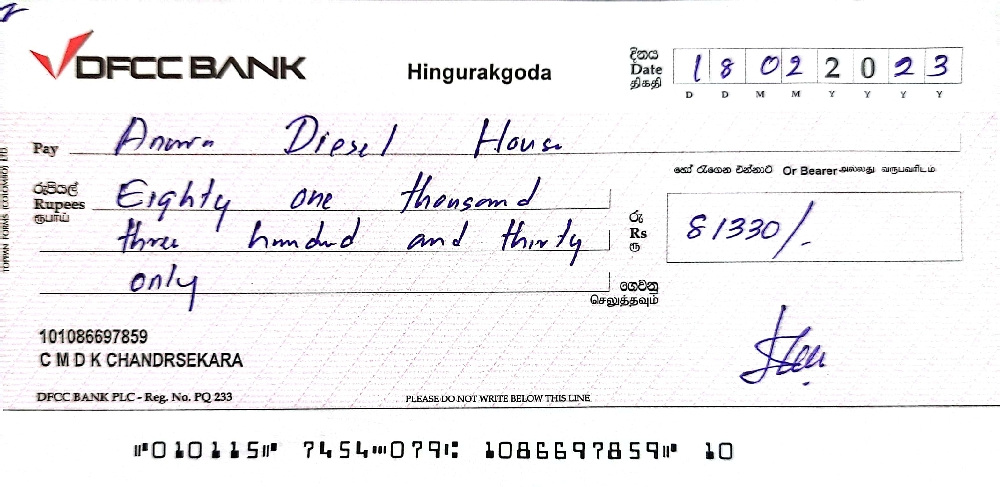 DFCC BANK
Hingurakgoda
දිනය
Date
திகதி
18 02 2023
D D M M Y Y Y Y
Pay Anura Diesel House
හෝ රැගෙන එන්නාට Or Bearer அல்லது வருபவரிடம்
රුපියල්
Rupees
ரூபாய்
Eighty one thousand
three hundred and thirty
only
රු
Rs
ரூ
81330/-
ගෙවනු
செலுத்தவும்
101086697859
C M D K CHANDRSEKARA
DFCC BANK PLC - Reg. No. PQ 233
PLEASE DO NOT WRITE BELOW THIS LINE
TOPPAN FORMS (COLOMBO) LTD.
⑈010115⑈ 7454⑉079⑆ 1086697859⑈ 10